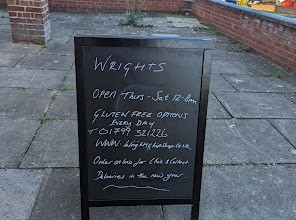 WRIGHTS
OPEN THURS - SAT 12-8pm
GLUTEN FREE OPTIONS
EVERY DAY
T 01799 521226
WWW.
Order online for Click & Collect.
Deliveries in the new year.